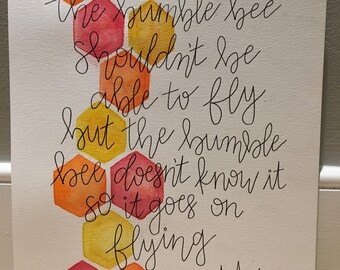 the bumble bee
shouldn't be
able to fly
but the bumble
bee doesn't know it
so it goes on
flying